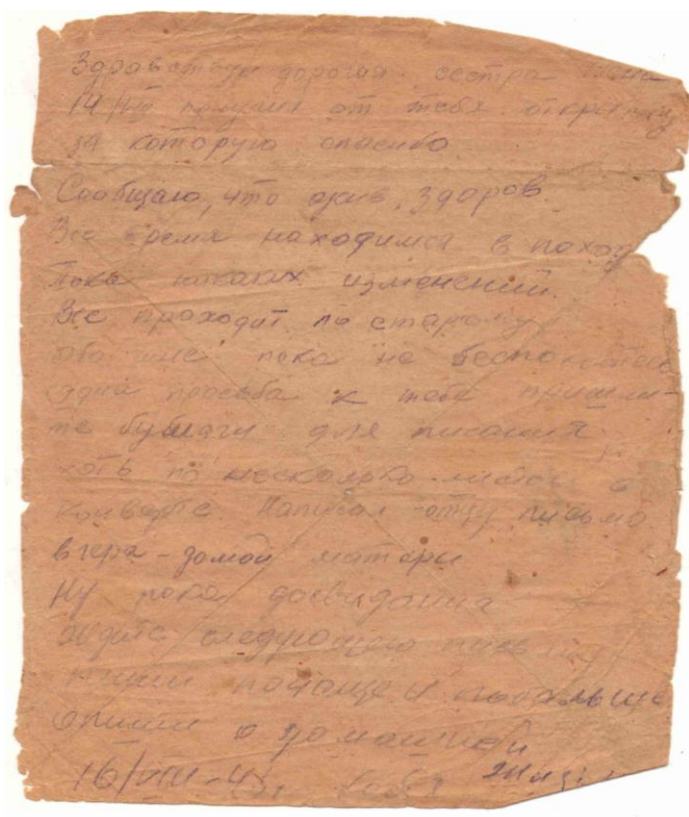 Здравствуй дорогая сестра
получил от тебя открытку
за которую спасибо
Сообщаю, что жив, здоров.
Все время находимся в поход
Пока никаких изменений.
Все проходит по старому
обо мне пока не беспокойтесь
одна просьба к тебе пришли-
те бумагу для писания
хоть по несколько листов в
конверте. Написал отцу письмо
вчера - домой матери
Ну пока досвидания
Ждите следующего
пиши почаще и побольше
опиши о домашней
16/VIII-4